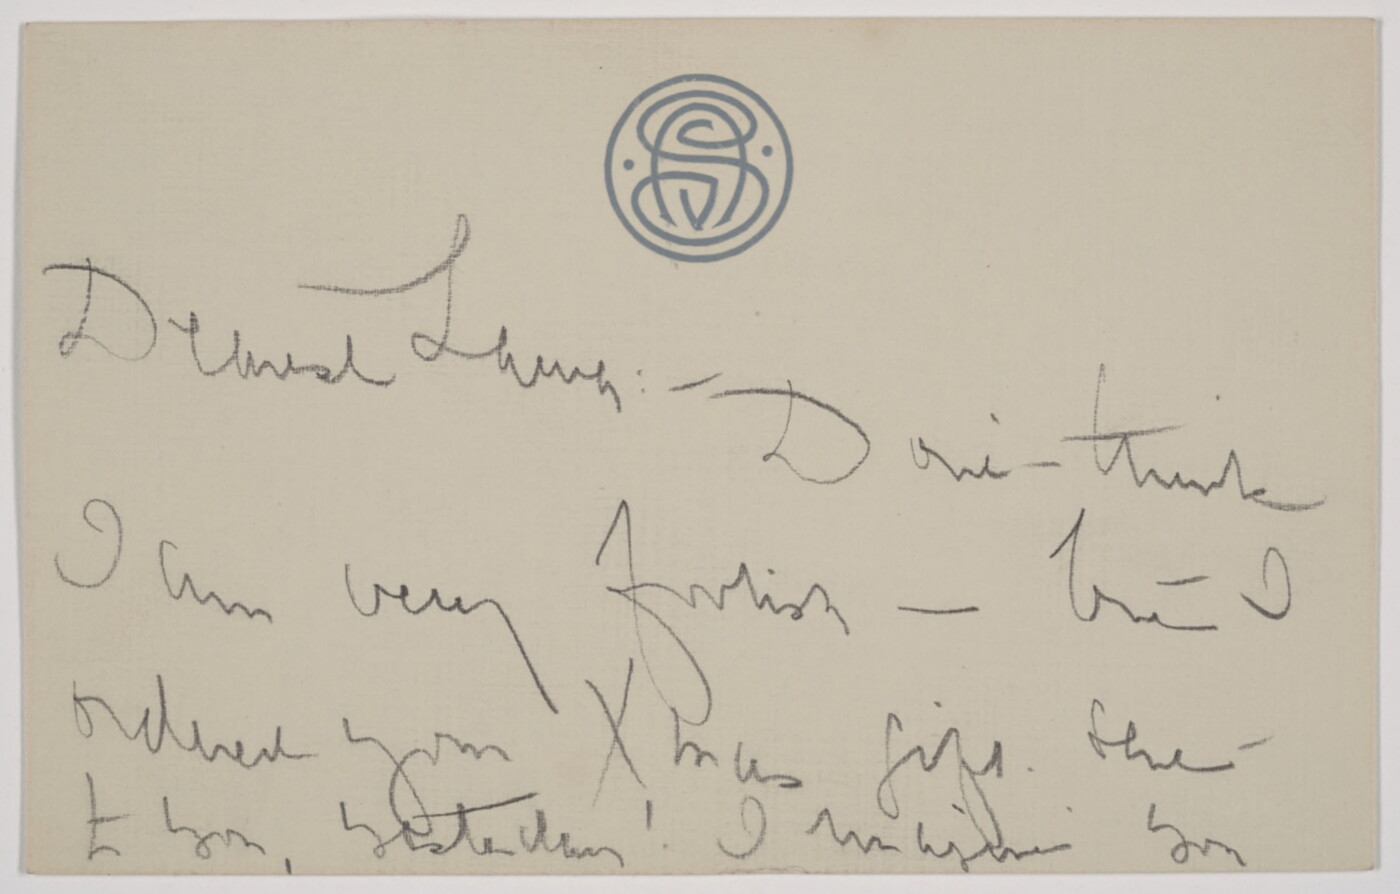 Dearest :— Don't think
I am very foolish — but I
ordered your Xmas gift sent
to you, yesterday! I imagine you